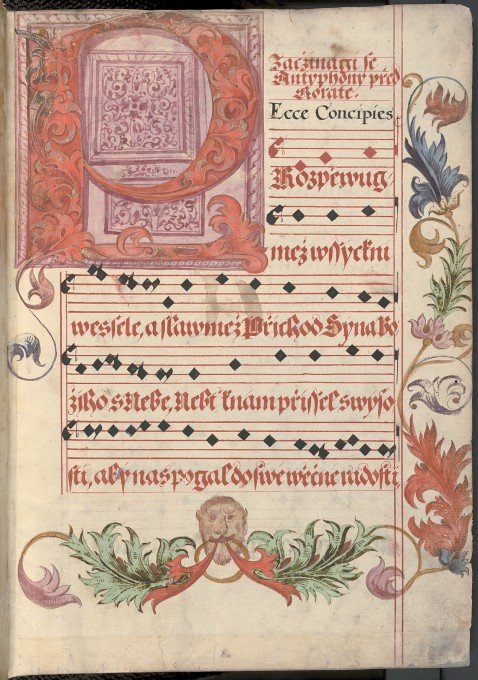 Začjnagj se
Antyphony před
Rorate.
Ecce Concipies
Rozpěwug
mež wssyckni
wessele, a slawmež Přjchod Syna Bo
žjho s Nebe, Nebt k nam přissel s wyso
sti, aby nas pogal do swe wěčne radosti